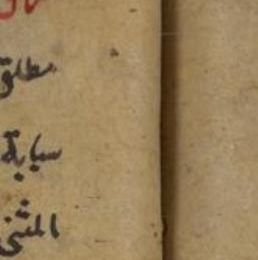 مطلق
سبابة
المثنى